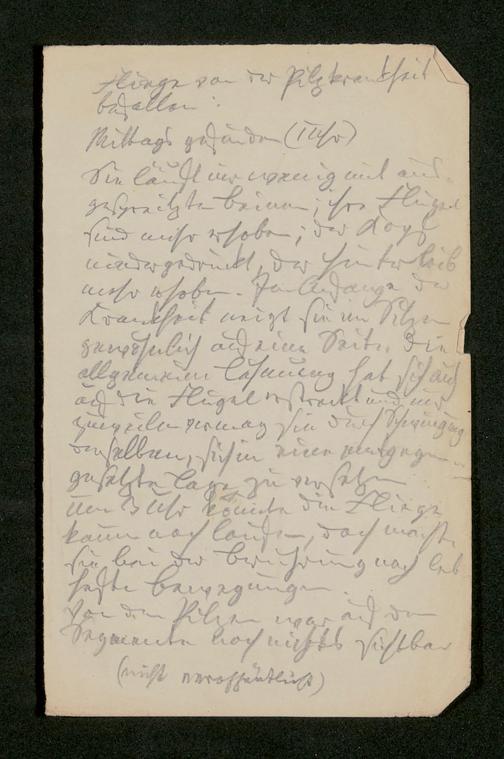 Fliege von der Pilzkrankheit
befallen:
Mittags gefunden (1 Uhr)
Sie läuft nur wenig mit aus-
gespreizten Beinen; ihre Flügel
sind mehr erhoben; der Kopf
niedergedrückt, der Hinterleib
mehr erhoben. Im Anfange der
Krankheit neigt sie im Sitzen
gewöhnlich auf eine Seite. Die
allgemeine Lähmung hat sich auch
auf die Flügel erstreckt und nur
zuweilen vermag sie durch Schwingung
derselben, sich in eine entgegen-
gesetzte Lage zu versetzen
Um 3 Uhr konnte die Fliege
kaum noch laufen, doch machte
sie bei der Berührung noch leb
hafte Bewegungen.
Von den Pilzen war auf den
Segmenten noch nichts sichtbar
(nicht veröffentlicht)